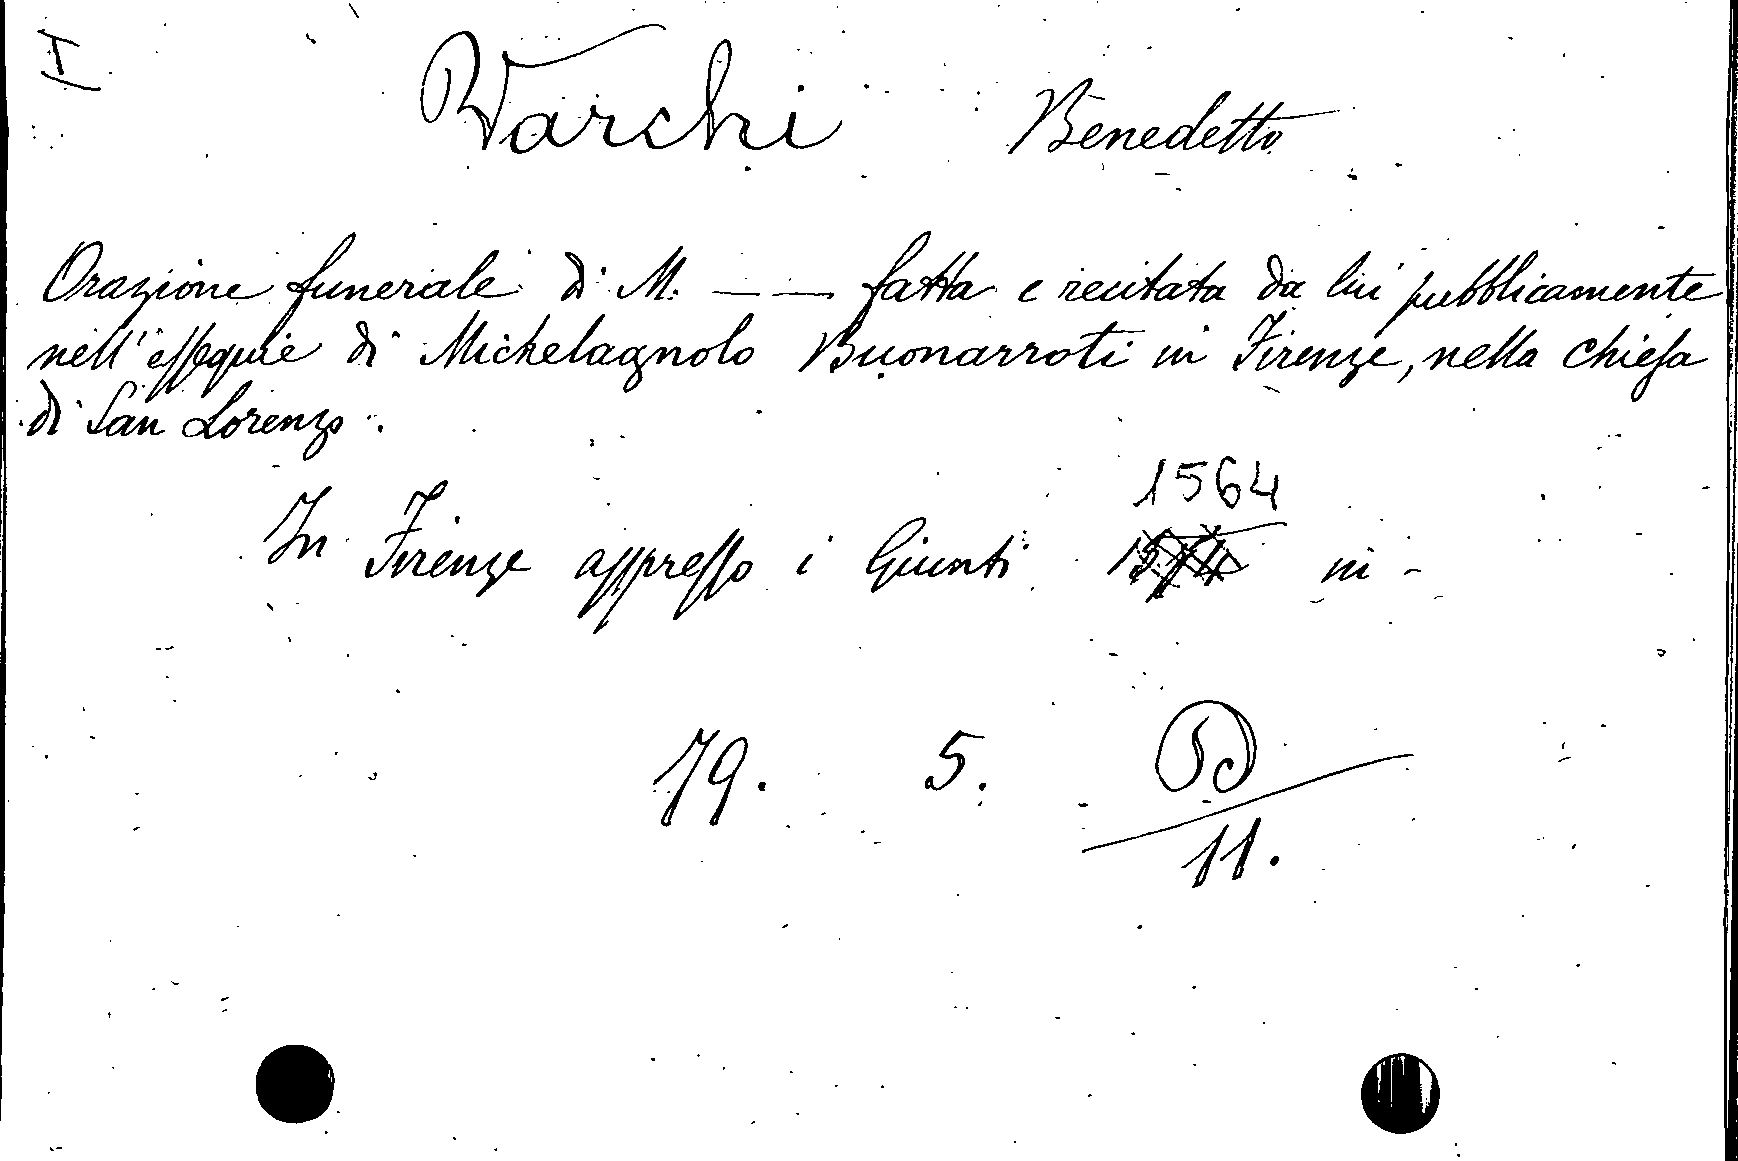 I
Varchi Benedetto
Orazione funerale di M. — — fatta e recitata da lui pubblicamente
nell'esſequie di Michelagnolo Buonarroti in Firenze, nella chieſa
di San Lorenzo.
1564
In Firenze appreſſo i Giunti 1574 in -
79. 5. D
11.